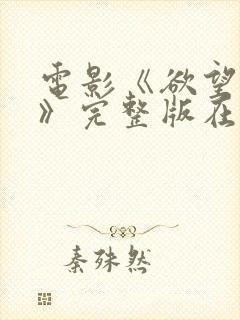 電影《欲望
》完整版在
秦殊然